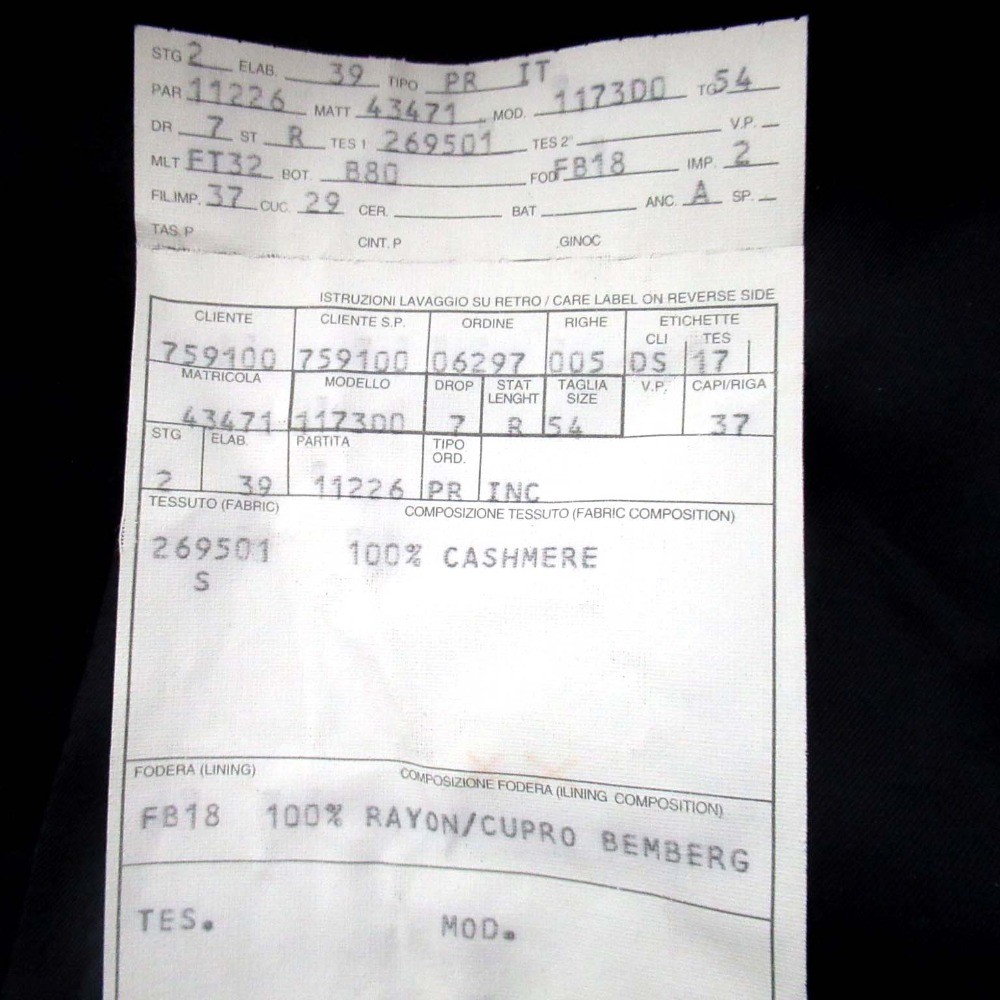 STG 2 ELAB. 39 TIPO PR IT
PAR 11226 MATT 43471 MOD. 117300 TG 54
DR 7 ST R TES 1 269501 TES 2° V.P.
MLT FT32 BOT. B80 FOD FB18 IMP. 2
FIL.IMP. 37 CUC. 29 CER. BAT ANC. A SP.
TAS.P CINT. P .GINOC
ISTRUZIONI LAVAGGIO SU RETRO / CARE LABEL ON REVERSE SIDE
CLIENTE CLIENTE S.P. ORDINE RIGHE ETICHETTE
CLI TES
759100 759100 06297 005 DS 17
MATRICOLA MODELLO DROP STAT LENGHT TAGLIA SIZE V.P. CAPI/RIGA
43471 117300 7 R 54 37
STG ELAB. PARTITA TIPO ORD.
2 39 11226 PR INC
TESSUTO (FABRIC) COMPOSIZIONE TESSUTO (FABRIC COMPOSITION)
269501 100% CASHMERE
S
FODERA (LINING) COMPOSIZIONE FODERA (ILINING COMPOSITION)
FB18 100% RAYON/CUPRO BEMBERG
TES. MOD.